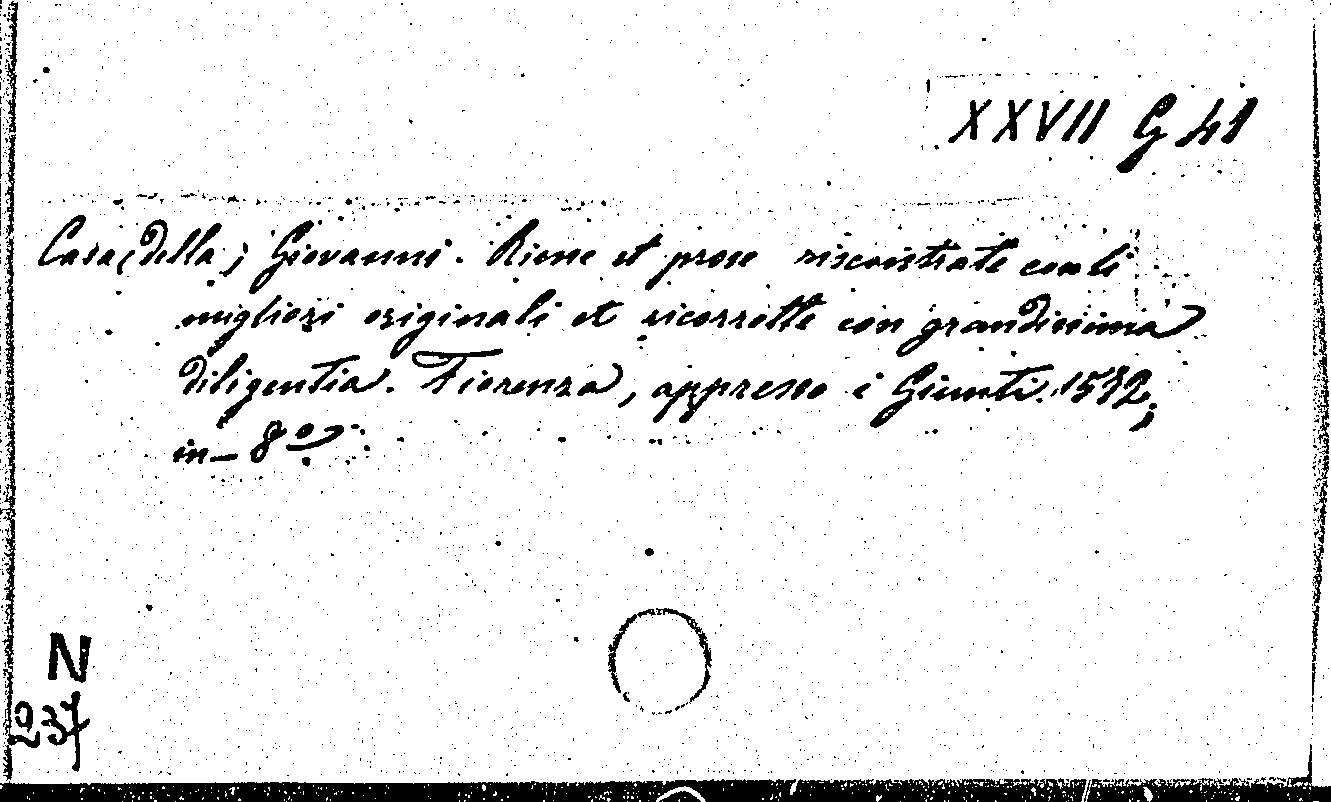 XXVII G 41
Casa (della) Giovanni. Rime et prose riscontrate con li
migliori originali et ricorrette con grandissima
diligentia. Fiorenza, appresso i Giunti. 1572,
in-8º.
N
237